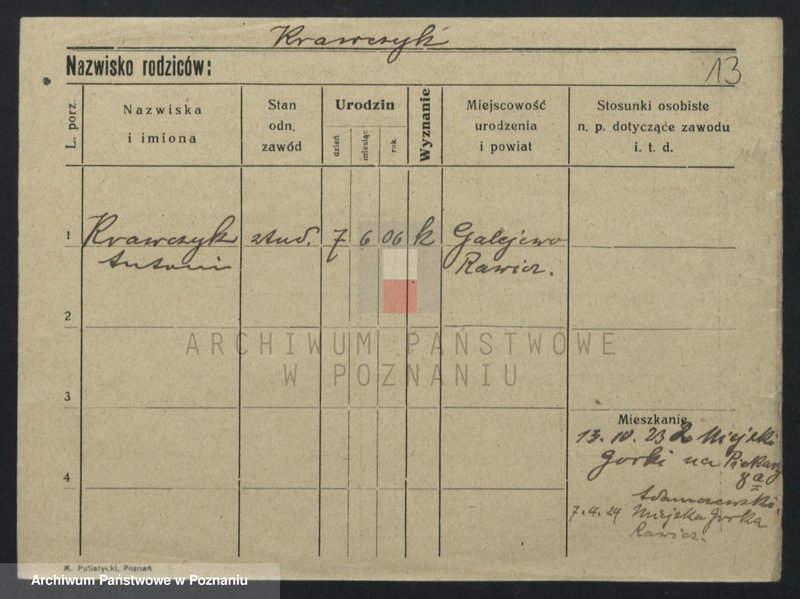 Krawczyk
Nazwisko rodziców:
13
L. porz.
Nazwiska
i imiona
Stan
odn.
zawód
Urodzin
dzień
miesiąc
rok
Wyznanie
Miejscowość
urodzenia
i powiat
Stosunki osobiste
n. p. dotyczące zawodu
i. t. d.
1 Krawczyk stud. 7 6 06 k Galejewo
Antoni Rawicz.
2
ARCHIWUM PAŃSTWOWE
W POZNANIU
3
Mieszkanie
13. 10. 23 Miejski
Gorki na Piekary
8a
4
Adamczewski.
7.4.24 Miejska Gorka
Rawicz.
M. Putiatycki, Poznań
Archiwum Państwowe w Poznaniu